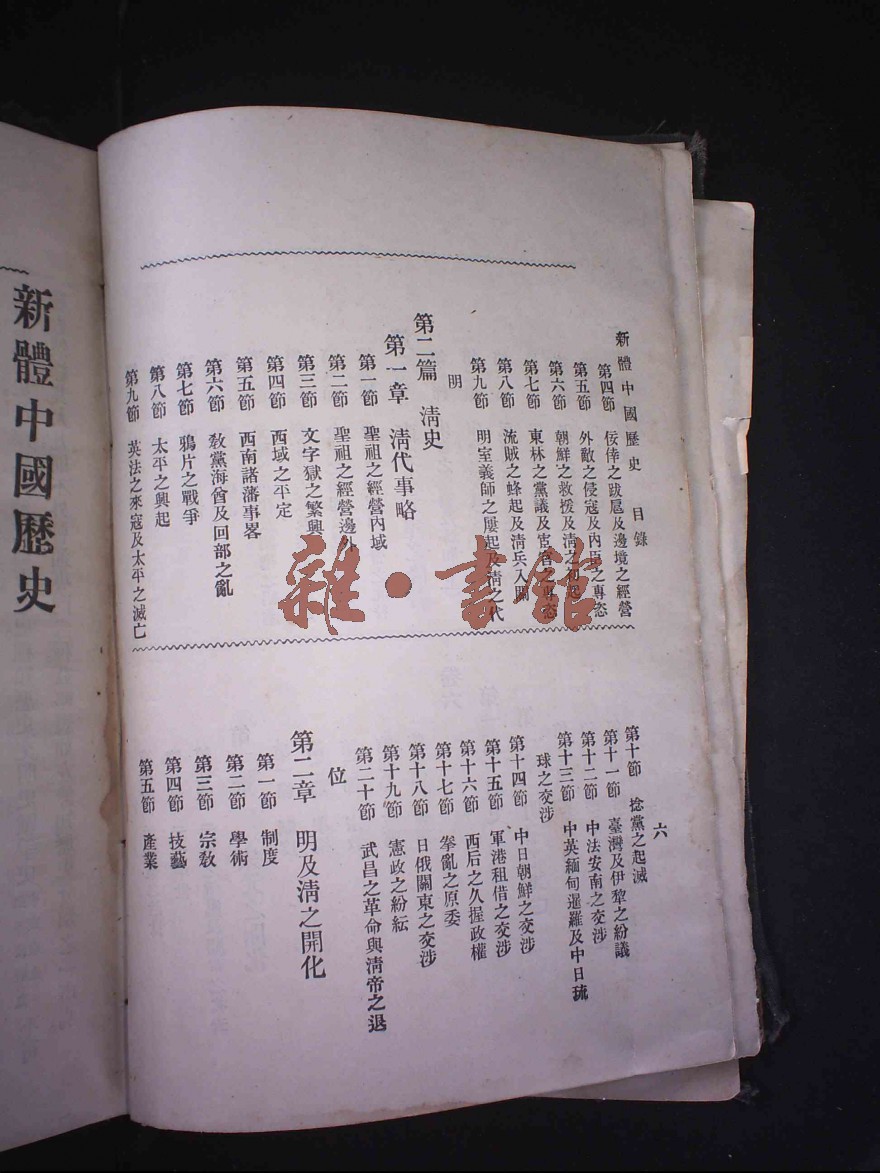 新體中國歷史 目錄
第四節 佞倖之跋扈及邊境之經營
第五節 外敵之侵寇及內臣之專恣
第六節 朝鮮之救援及淸之初起
第七節 東林之黨議及宦官之專恣
第八節 流賊之蜂起及淸兵入關
第九節 明室義師之屢起及淸之代
明
第二篇 淸史
第一章 淸代事略
第一節 聖祖之經營內域
第二節 聖祖之經營邊外
第三節 文字獄之繁興
第四節 西域之平定
第五節 西南諸藩事畧
第六節 敎黨海酋及回部之亂
第七節 鴉片之戰爭
第八節 太平之興起
第九節 英法之來寇及太平之滅亡
六
第十節 捻黨之起滅
第十一節 臺灣及伊犂之紛議
第十二節 中法安南之交涉
第十三節 中英緬甸暹羅及中日琉
球之交涉
第十四節 中日朝鮮之交涉
第十五節 軍港租借之交涉
第十六節 西后之久握政權
第十七節 拳亂之原委
第十八節 日俄關東之交涉
第十九節 憲政之紛紜
第二十節 武昌之革命與淸帝之退
位
第二章 明及淸之開化
第一節 制度
第二節 學術
第三節 宗敎
第四節 技藝
第五節 產業
新體中國歷史
雜·書館